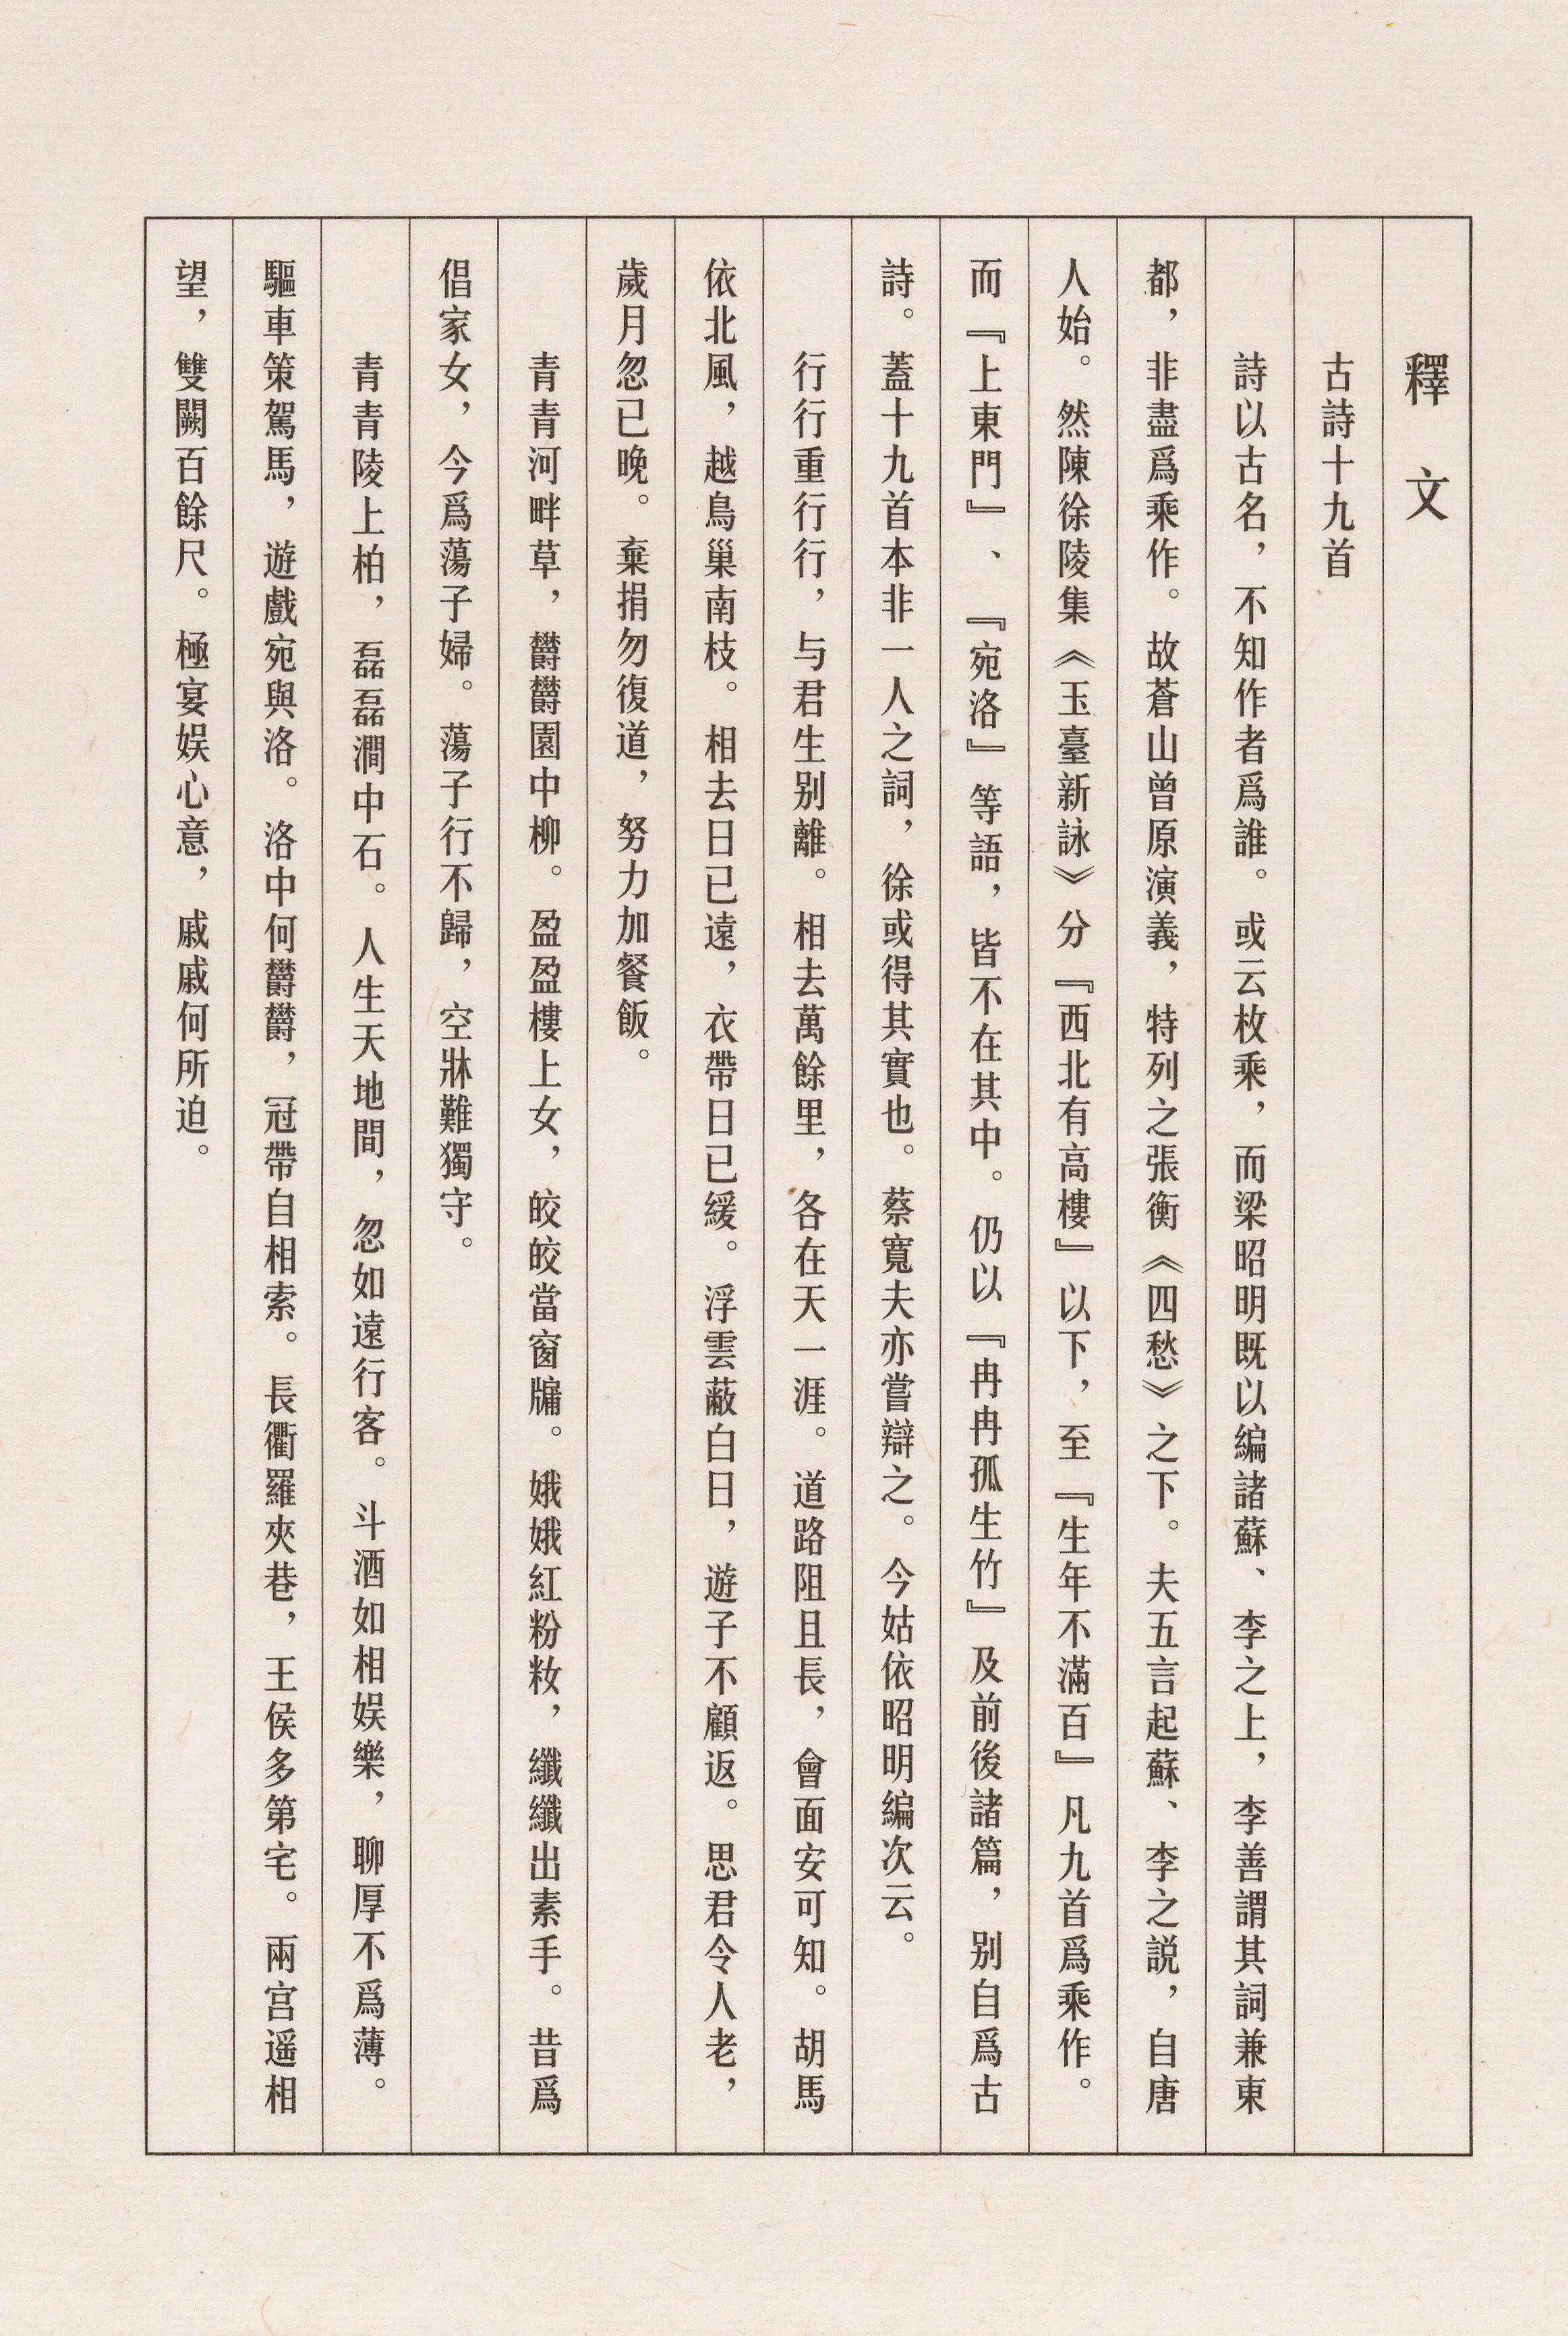 釋文
古詩十九首
詩以古名，不知作者爲誰。或云枚乘，而梁昭明既以編諸蘇、李之上，李善謂其詞兼東
都，非盡爲乘作。故蒼山曾原演義，特列之張衡《四愁》之下。夫五言起蘇、李之説，自唐
人始。然陳徐陵集《玉臺新詠》分『西北有高樓』以下，至『生年不滿百』凡九首爲乘作。
而『上東門』、『宛洛』等語，皆不在其中。仍以『冉冉孤生竹』及前後諸篇，别自爲古
詩。蓋十九首本非一人之詞，徐或得其實也。蔡寬夫亦嘗辯之。今姑依昭明編次云。
行行重行行，与君生别離。相去萬餘里，各在天一涯。道路阻且長，會面安可知。胡馬
依北風，越鳥巢南枝。相去日已遠，衣帶日已緩。浮雲蔽白日，遊子不顧返。思君令人老，
歲月忽已晚。棄捐勿復道，努力加餐飯。
青青河畔草，欝欝園中柳。盈盈樓上女，皎皎當窗牖。娥娥紅粉妝，纖纖出素手。昔爲
倡家女，今爲蕩子婦。蕩子行不歸，空牀難獨守。
青青陵上柏，磊磊澗中石。人生天地間，忽如遠行客。斗酒如相娱樂，聊厚不爲薄。
驅車策駕馬，遊戲宛與洛。洛中何欝欝，冠帶自相索。長衢羅夾巷，王侯多第宅。兩宫遥相
望，雙闕百餘尺。極宴娱心意，戚戚何所迫。